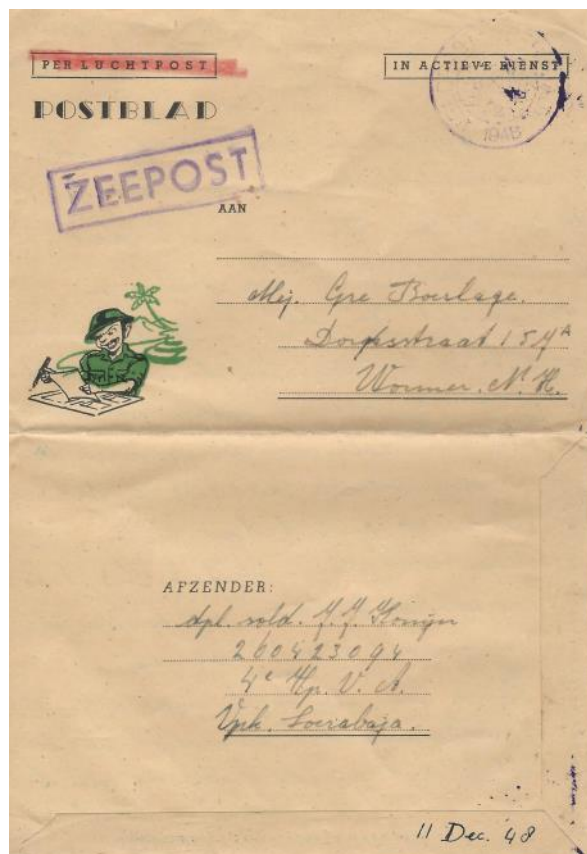 PER LUCHTPOST
IN ACTIEVE DIENST
POSTBLAD
1948
ZEEPOST
AAN
Mej. Gre Boerlage.
Dorpsstraat 154A
Wormer. N. H.
AFZENDER:
dpl. sold. J. J. Konijn
260423094
4e Hp. V. A.
Vpk. Soerabaja.
11 Dec. '48